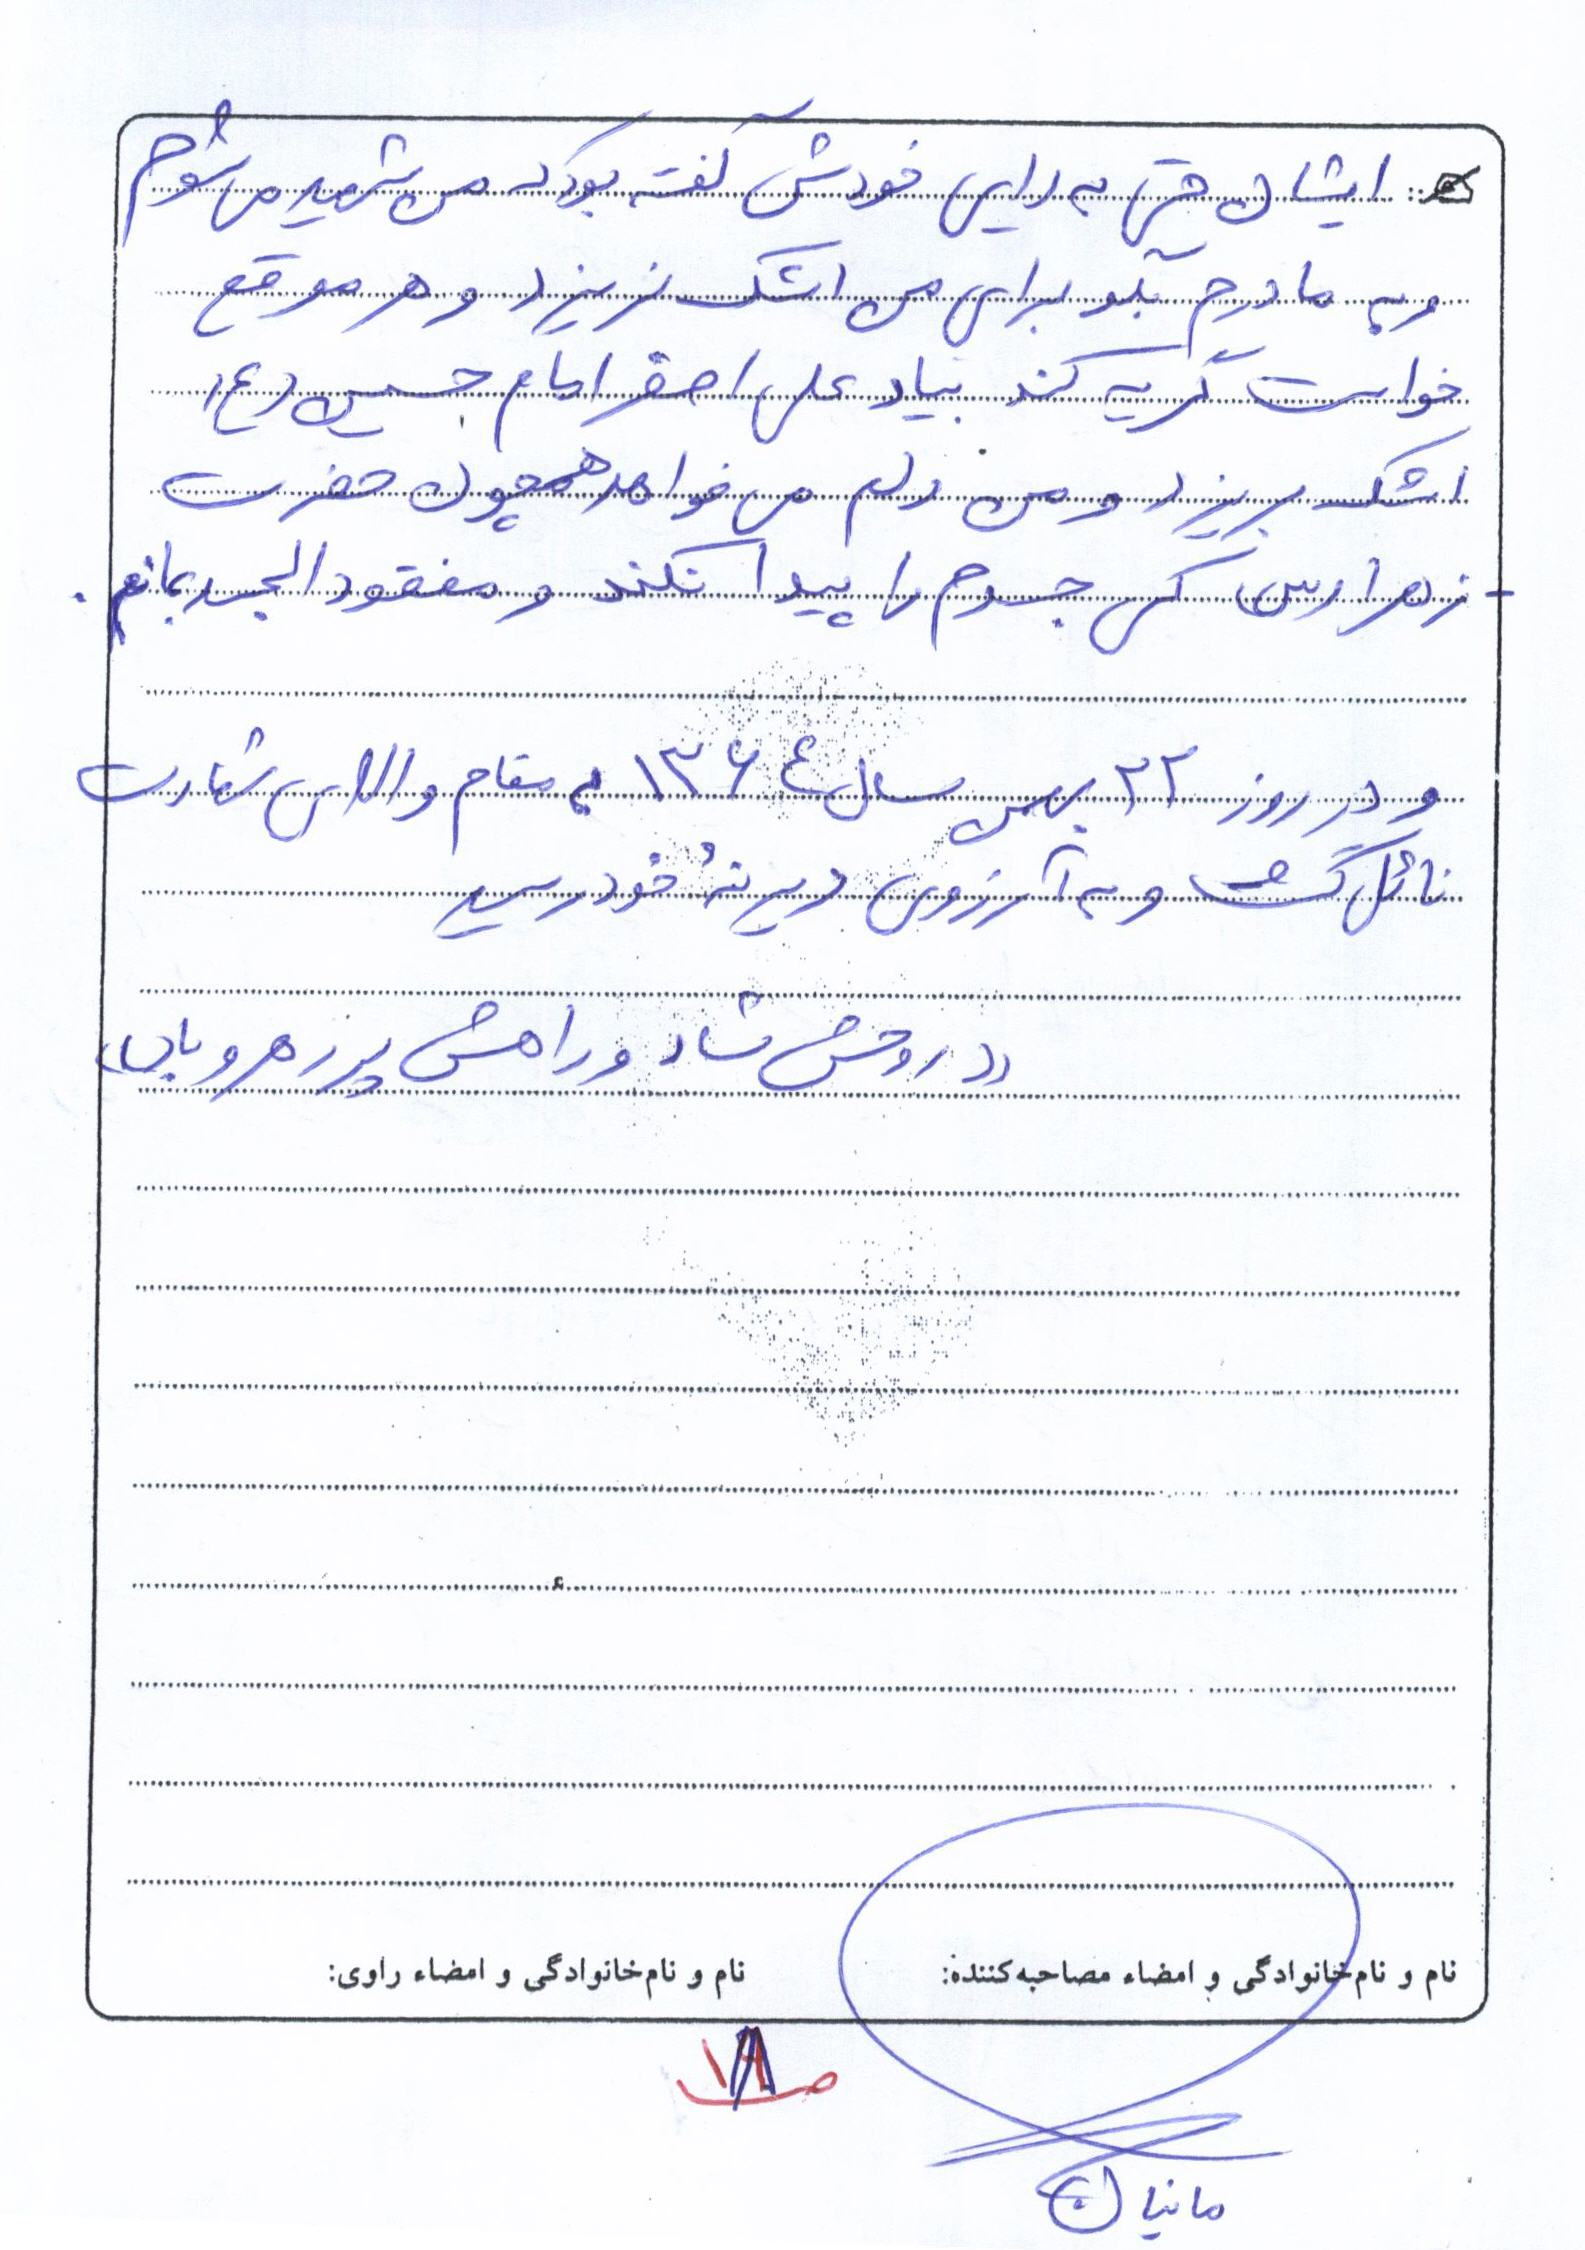 ایشان حتی به دایی خودش گفته بود که من شهید می شوم
و به مادرم بگو برای من اشک نریزد و هر موقع
خواست گریه کند بیاد علی اصغر امام حسین (ع)
اشک بریزد و من دلم می خواهد همچون حضرت
زهرا (س) کسی جسدم را پیدا نکند و مفقود الجسد بمانم.
و در روز ۲۲ بهمن سال ۱۳۶۴ به مقام والای شهادت
نائل گشت و به آرزوی دیرینهٔ خود رسید
((روحش شاد و راهش پر رهرو باد))
نام و نام‌خانوادگی و امضاء مصاحبه‌کننده:
نام و نام‌خانوادگی و امضاء راوی:
ص ۱۸
مانیان